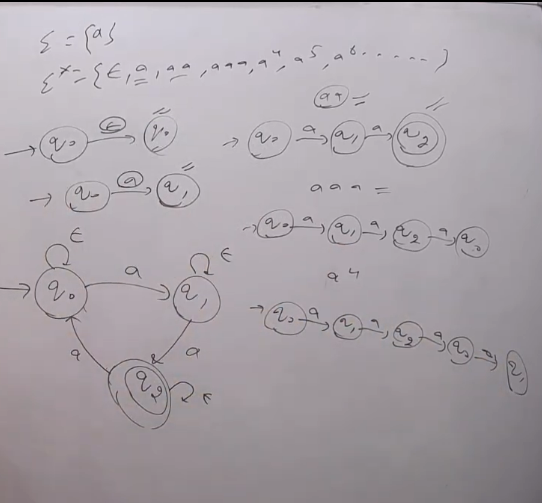 Σ = {a}
Σ* = {ϵ, a, aa, aaa, a⁴, a⁵, a⁶ ......}
aa =
q₀ ϵ q₀
q₀ a q₁ a q₂
q₀ a q₁
aaa =
q₀ a q₁ a q₂ a q₀
ϵ ϵ
q₀ a q₁
a⁴
q₀ a q₁ a q₂ a q₀ a q₁
a a
q₂ ϵ